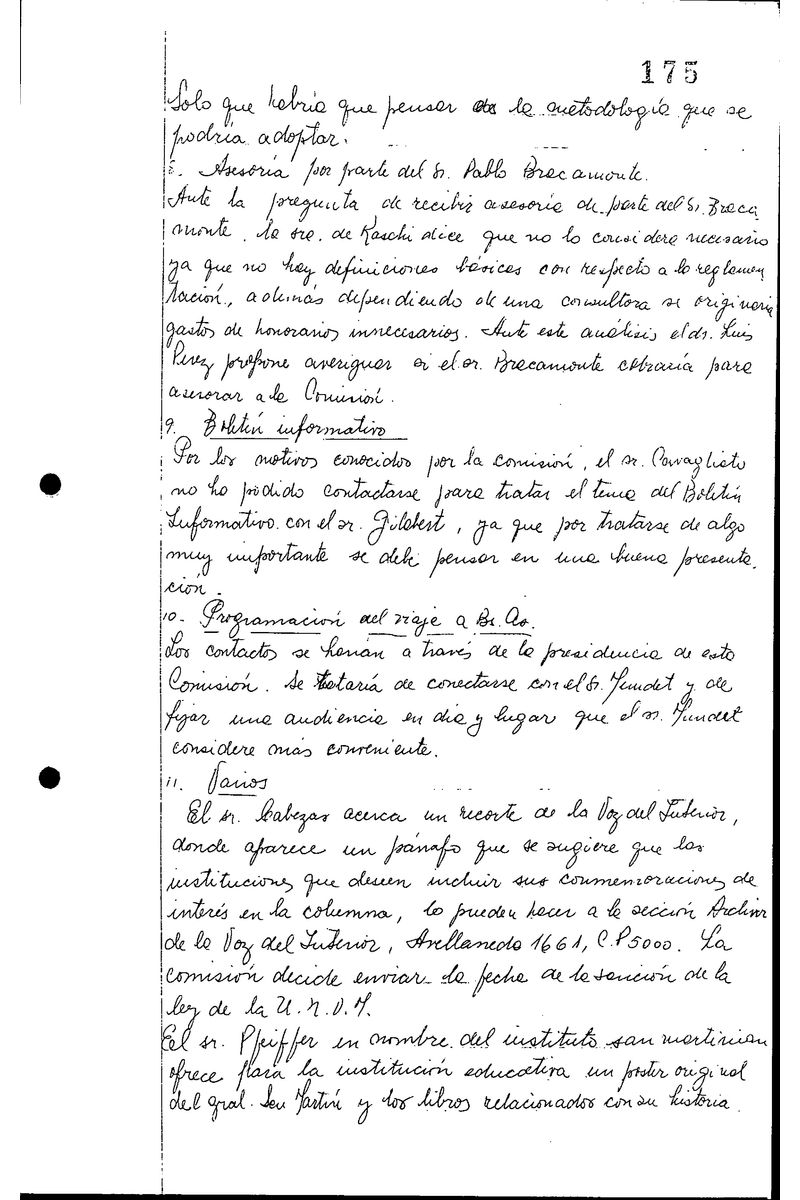 175
Solo que habría que pensar en la metodología que se
podría adoptar.
8. Asesoría por parte del Sr. Pablo Bracamonte.
Ante la pregunta de recibir asesoría de parte del Sr. Braca
monte, la sra. de Raschi dice que no lo considera necesario
ya que no hay definiciones básicas con respecto a la reglamen
tación, además dependiendo de una consultora se originaría
gastos de honorarios innecesarios. Ante este análisis el dr. Luis
Perez propone averiguar si el sr. Bracamonte cobraría para
asesorar a la Comisión.
9. Boletín informativo
Por los motivos conocidos por la comisión, el sr. Cavagliato
no ha podido contactarse para tratar el tema del Boletín
Informativo con el sr. Gilabert, ya que por tratarse de algo
muy importante se debe pensar en una buena presenta.
ción.
10- Programación del viaje a Bs. As.
Los contactos se harían a través de la presidencia de esta
Comisión. Se trataría de conectarse con el Sr. Jundet y de
fijar una audiencia en día y lugar que el sr. Jundet
considere más conveniente.
11. Varios
El sr. Cabezas acerca un recorte de la Voz del Interior,
donde aparece un párrafo que se sugiere que las
instituciones que deseen incluir sus conmemoraciones de
interés en la columna, lo pueden hacer a la sección Archivo
de la Voz del Interior, Avellaneda 1661, C.P 5000. La
comisión decide enviar la fecha de la sanción de la
ley de la U.N.V.M.
El sr. Pfeiffer en nombre del instituto san martinian
ofrece para la institución educativa un poster original
del gral. San Martín y los libros relacionados con su historia.